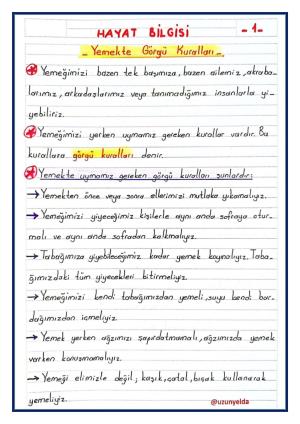 HAYAT BİLGİSİ
-1-
- Yemekte Görgü Kuralları -.
Yemeğimizi bazen tek başımıza, bazen ailemiz, akraba-
larımız, arkadaşlarımız veya tanımadığımız insanlarla yi-
yebiliriz.
Yemeğimizi yerken uymamız gereken kurallar vardır. Bu
kurallara görgü kuralları denir.
Yemekte uymamız gereken görgü kuralları şunlardır;
→ Yemekten önce veya sonra ellerimizi mutlaka yıkamalıyız.
→ Yemeğimizi yiyeceğimiz kişilerle aynı anda sofraya otur-
malı ve aynı anda sofradan kalkmalıyız.
→ Tabağımıza yiyebileceğimiz kadar yemek koymalıyız. Taba-
ğımızdaki tüm yiyecekleri bitirmeliyiz.
→ Yemeğimizi kendi tabağımızdan yemeli, suyu kendi bar-
dağımızdan içmeliyiz.
→ Yemek yerken ağzımızı şapırdatmamalı, ağzımızda yemek
varken konuşmamalıyız.
→ Yemeği elimizle değil; kaşık, çatal, bıçak kullanarak
yemeliyiz.
@uzunyelda